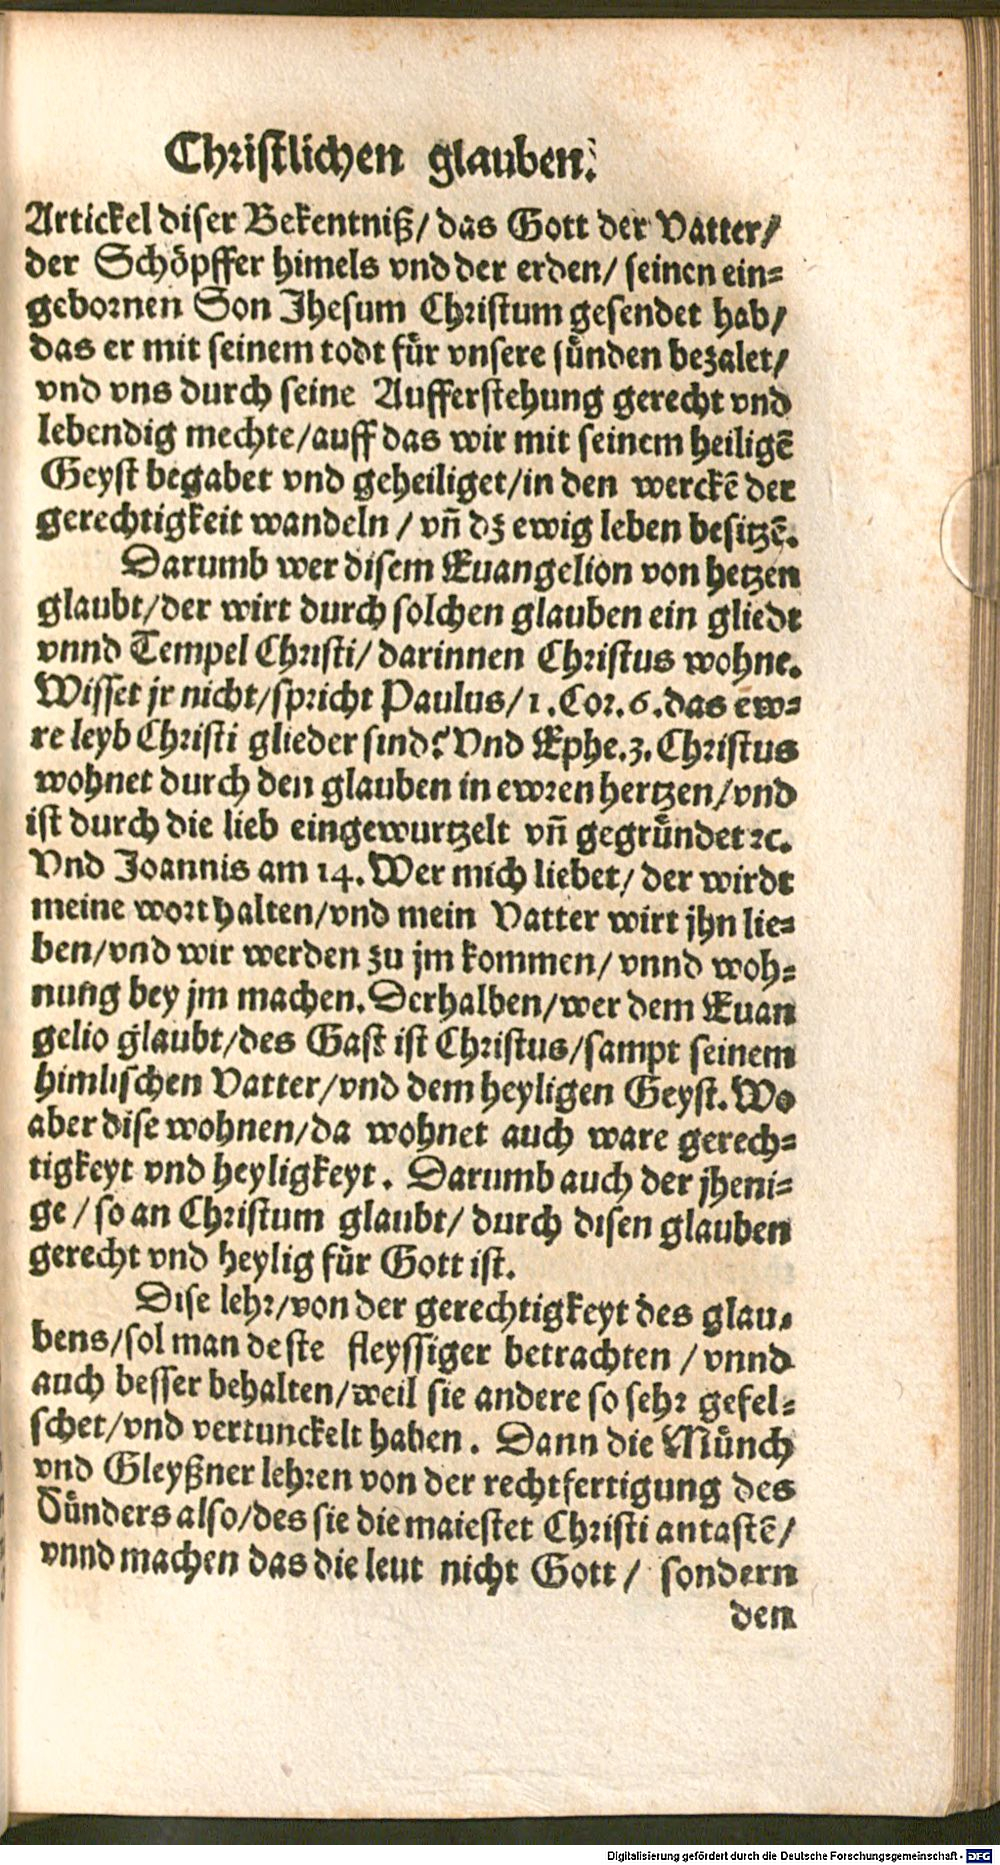 Christlichen glauben.
Artickel diser Bekentniß/ das Gott der Vatter/
der Schöpffer himels vnd der erden/ seinen ein-
gebornen Son Jhesum Christum gesendet hab/
das er mit seinem todt für vnsere sünden bezalet/
vnd vns durch seine Aufferstehung gerecht vnd
lebendig mechte/auff das wir mit seinem heiligē
Geyst begabet vnd geheiliget/in den werckē der
gerechtigkeit wandeln / vñ dz ewig leben besitzē.
Darumb wer disem Euangelion von hetzen
glaubt/der wirt durch solchen glauben ein gliedt
vnnd Tempel Christi/ darinnen Christus wohne.
Wisset jr nicht/spricht Paulus/1.Cor.6.das ew-
re leyb Christi glieder sind? Vnd Ephe.3.Christus
wohnet durch den glauben in ewren hertzen/vnd
ist durch die lieb eingewurtzelt vñ gegründet ꝛc.
Vnd Joannis am 14.Wer mich liebet/ der wirdt
meine wort halten/vnd mein Vatter wirt jhn lie-
ben/vnd wir werden zu jm kommen/ vnnd woh-
nung bey jm machen.Derhalben/wer dem Euan
gelio glaubt/des Gast ist Christus/sampt seinem
himlischen Vatter/vnd dem heyligen Geyst.Wo
aber dise wohnen/da wohnet auch ware gerech-
tigkeyt vnd heyligkeyt. Darumb auch der jheni-
ge / so an Christum glaubt/ durch disen glauben
gerecht vnd heylig für Gott ist.
Dise lehr/von der gerechtigkeyt des glau-
bens/sol man deste fleyssiger betrachten / vnnd
auch besser behalten/weil sie andere so sehr gefel-
schet/vnd vertunckelt haben. Dann die Münch
vnd Gleyßner lehren von der rechtfertigung des
Sünders also/des sie die maiestet Christi antastē/
vnnd machen das die leut nicht Gott/ sondern
den
Digitalisierung gefördert durch die Deutsche Forschungsgemeinschaft - DFG